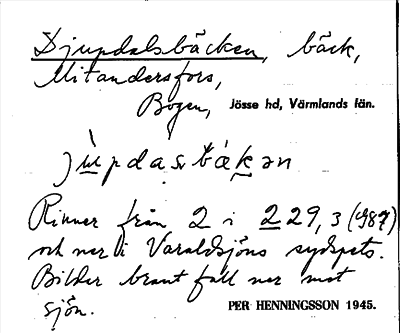 Djupdalsbäcken, bäck,
Mitandersfors,
Bogen, Jösse hd, Värmlands län.
jùpdàsbäkən
Rinner från 2 i 229,3 (1987)
och ner i Varaldsjöns sydspets.
Bilder brant fall ner mot
sjön. PER HENNINGSSON 1945.